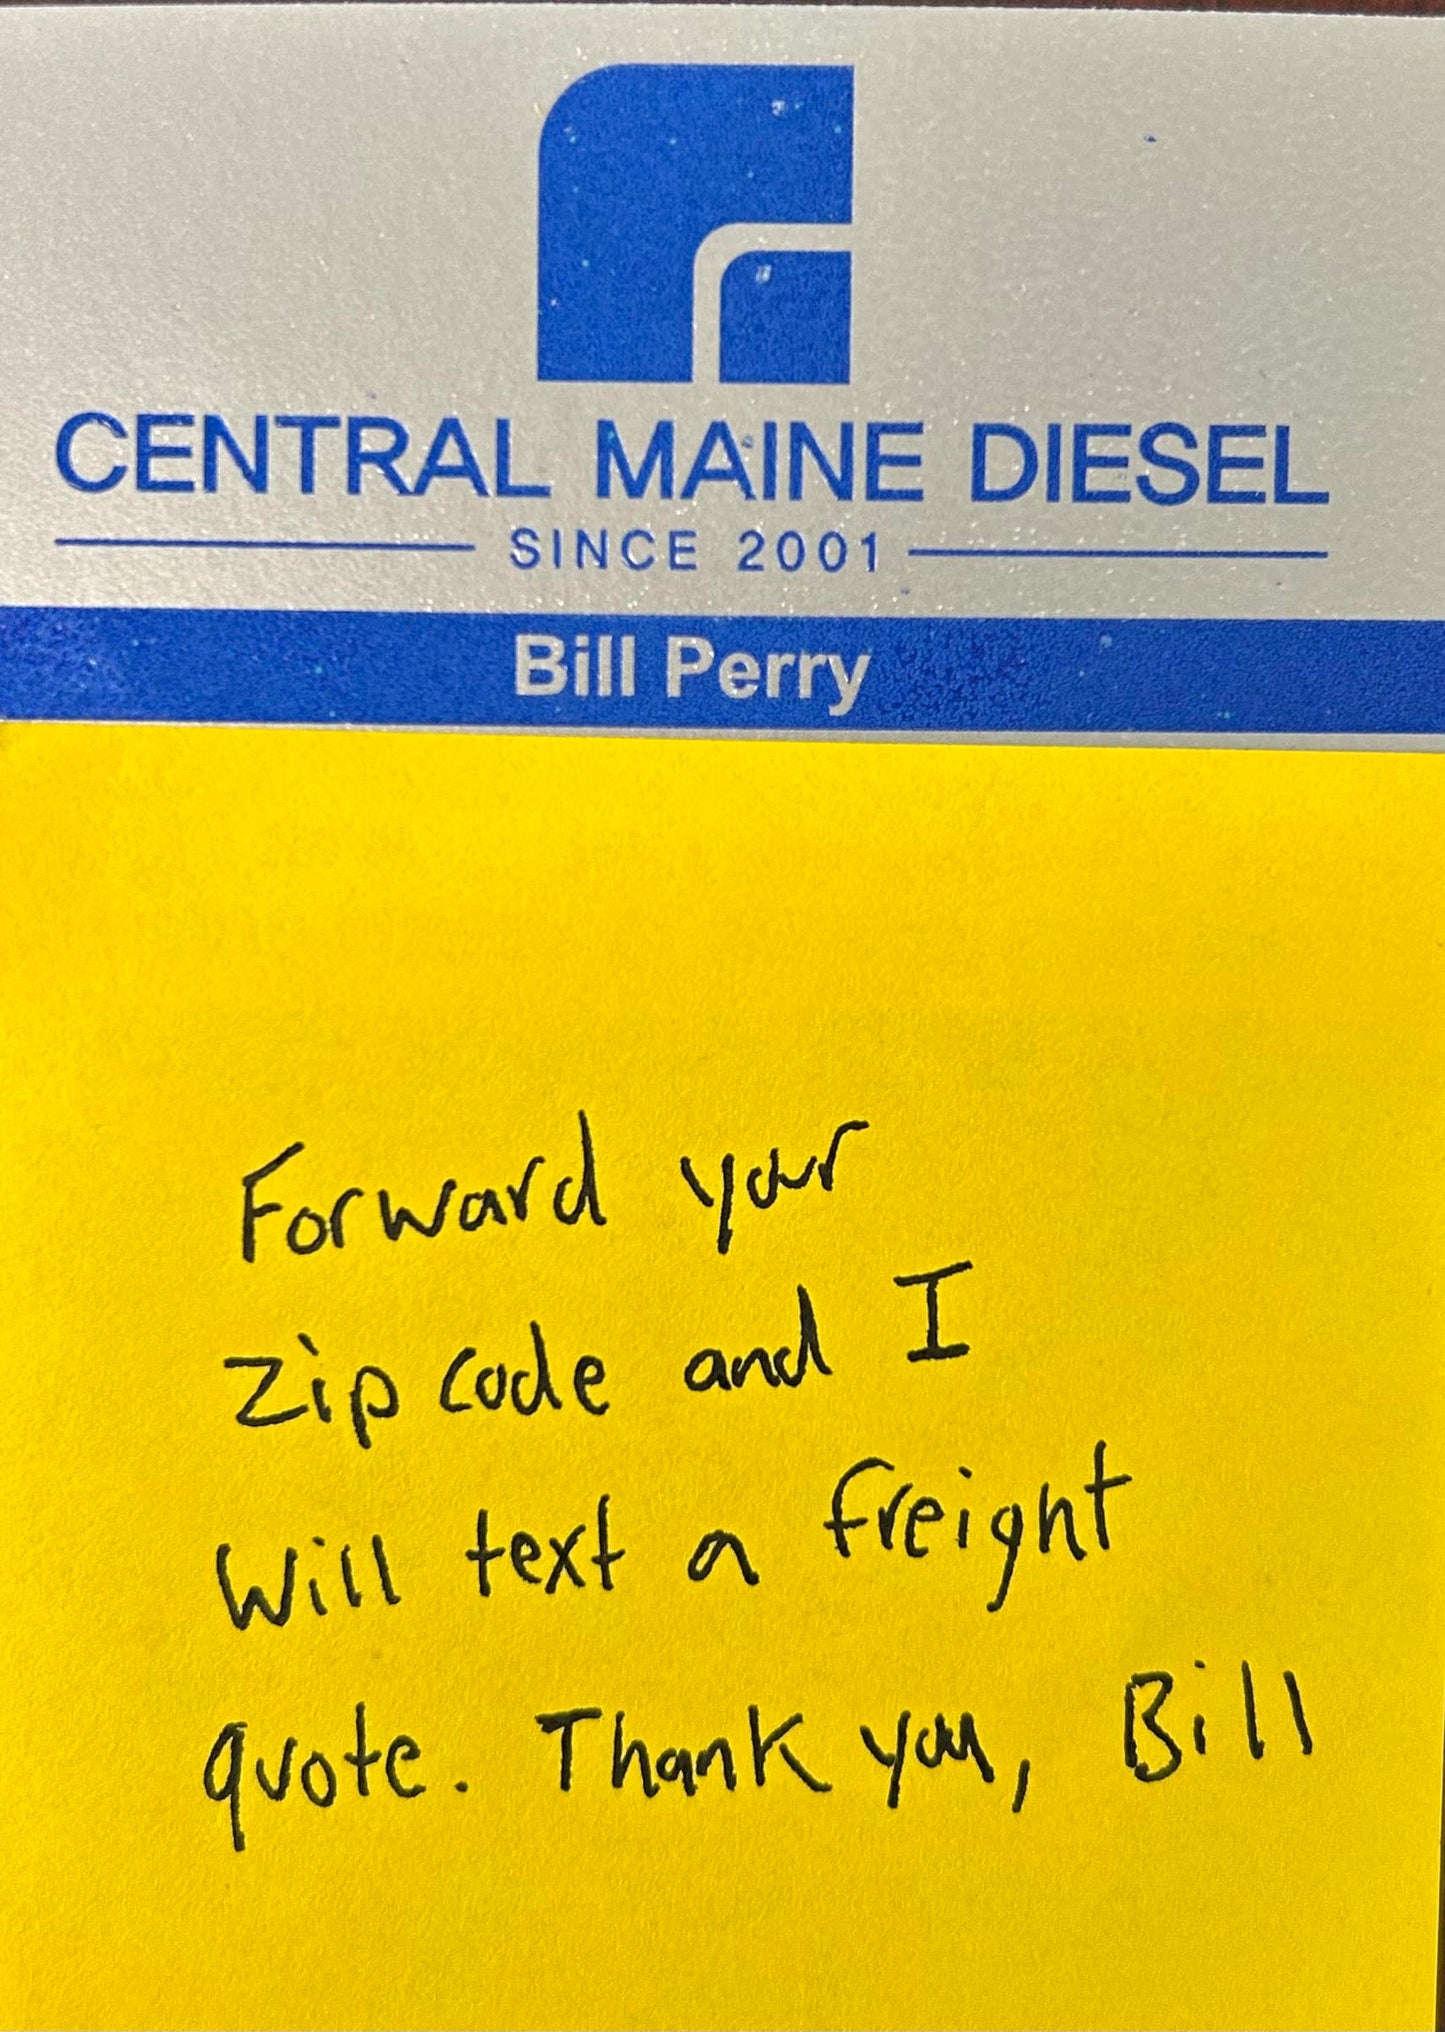 CENTRAL MAINE DIESEL
SINCE 2001
Bill Perry
Forward your
Zip code and I
Will text a freight
quote. Thank you, Bill